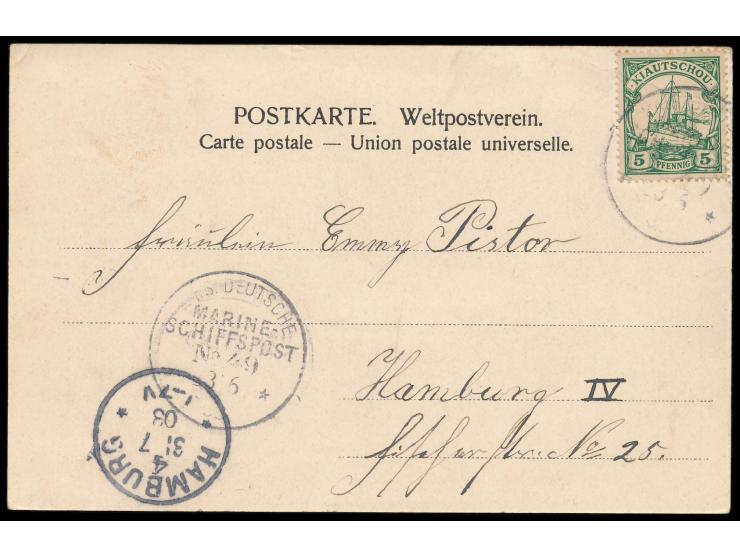 POSTKARTE. Weltpostverein.
Carte postale — Union postale universelle.
KIAUTSCHOU
5 PFENNIG 5
Fräulein Emmy Pistor
DEUTSCHE
MARINE-
SCHIFFSPOST
No 49
3 6
Hamburg IV
Fischerstr. No 25.
HAMBURG
4
31.7
03